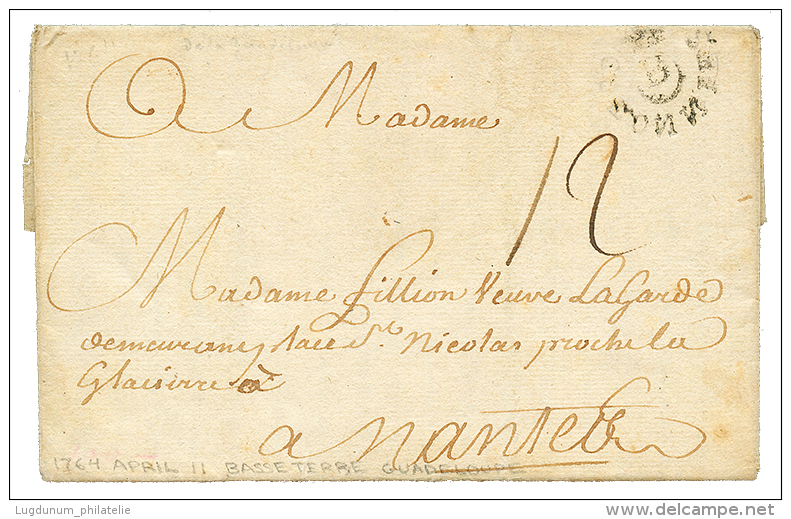 A Madame
12
Madame fillion Veuve LaGarde
demeurant place St. Nicolas proche la
Glacierre à
a Nantes
1764 APRIL 11 BASSE TERRE GUADELOUPE
Lugdunum_philatelie
delcampe.net